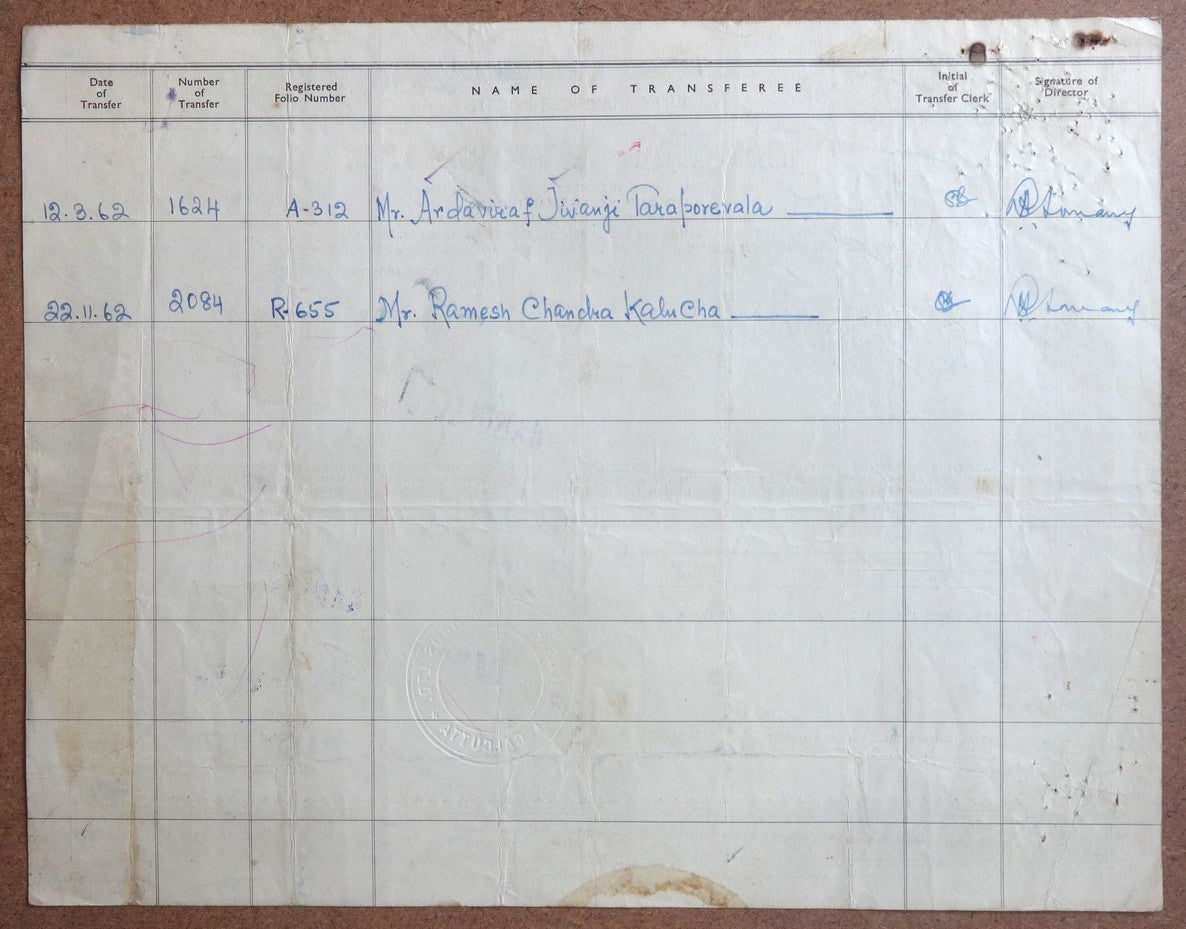 Date of Transfer Number of Transfer Registered Folio Number NAME OF TRANSFEREE Initial of Transfer Clerk Signature of Director
12.3.62 1624 A-312 Mr. Ardaviraf Jivanji Taraporevala
22.11.62 2084 R-655 Mr. Ramesh Chandra Kalucha